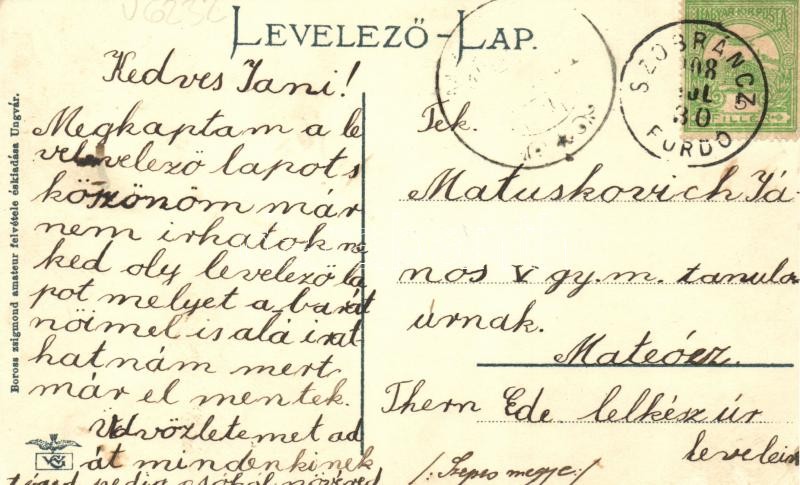 V6232
LEVELEZŐ-LAP.
Kedves Jani!
Megkaptam a le
velevelező lapot s
köszönöm már
nem irhatok ne
ked oly levelező la
pot melyet a barát
nőimel is alá irat
hatnám mert
már el mentek.
Üdvözletemet ad
át mindenkinek
téged pedig csókol nővéred
Boross zsigmond amateur felvétele és kiadása Ungvár.
MAGYAR KIR. POSTA
FILLÉR
SZOBRÁNCZ
908
JUL
30
FÜRDŐ
Tek.
Matuskovich Já-
nos V gy. m. tanuló
úrnak.
Mateócz.
Thern Ede lelkész úr
leveleive
/: Szepes megye :/